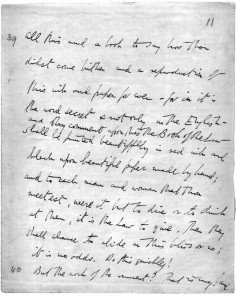 11
39 All this and a book to say how thou
didst come hither and a reproduction of
this ink and paper for ever - for in it is
the word secret & not only in the English -
and thy comment upon this the Book of the Law
shall be printed beautifully in red ink and
black upon beautiful paper made by hand;
and to each man and woman that thou
meetest, were it but to dine or to drink
at them, it is the Law to give. Then they
shall chance to abide in this bliss or no;
it is no odds. Do this quickly!
40 But the work of the comment? That is easy; and